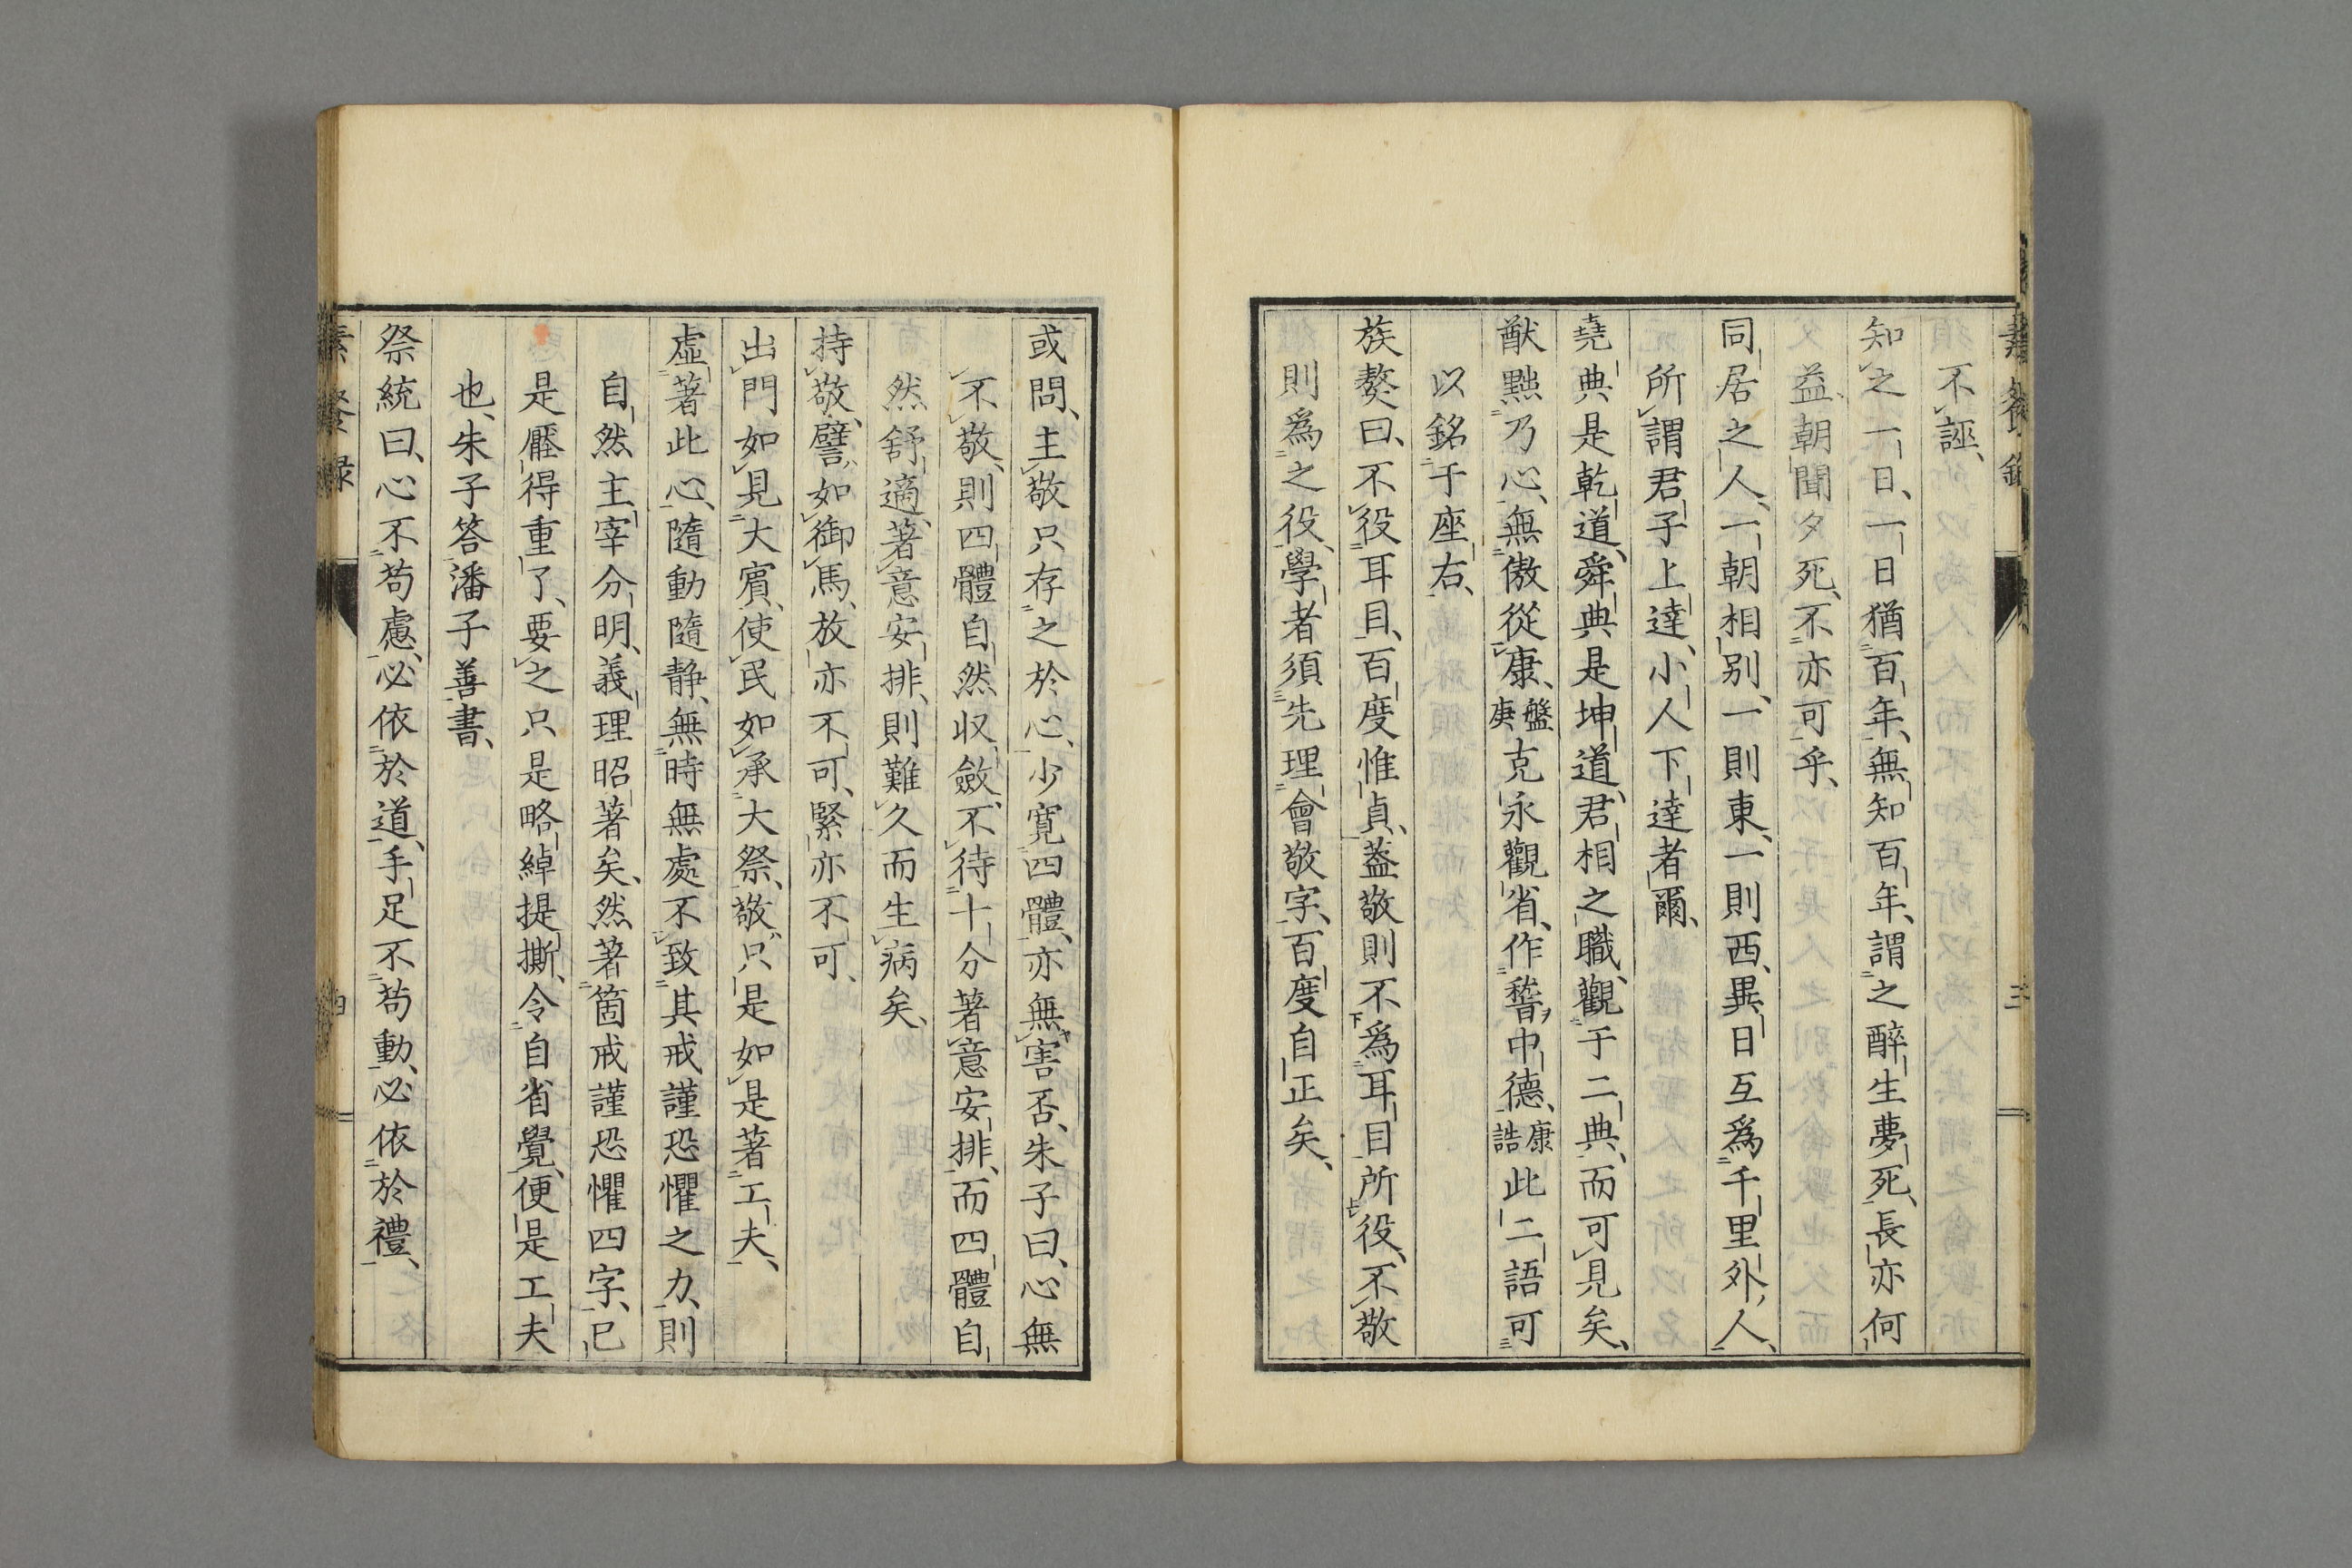 不誣、
知之一日、一日猶百年、無知百年、謂之醉生夢死、長亦何
益、朝聞夕死、不亦可乎、
同居之人、一朝相别、一則東、一則西、異日互爲千里外人、
所謂君子上達、小人下達者爾、
堯典是乾道、舜典是坤道、君相之職、觀于二典、而可見矣、
猷黜乃心、無傲從康、盤庚克永觀省、作稽中德、康誥此二語可
以銘于座右、
族獒曰、不役耳目、百度惟貞、蓋敬則不爲耳目所役、不敬
則爲之役、學者須先理會敬字、百度自正矣、
三
或問、主敬只存之於心、少寬四體、亦無害否、朱子曰、心無
不敬、則四體自然収斂、不待十分著意安排、而四體自
然舒適、著意安排、則難久而生病矣、
持敬、譬如御馬、放亦不可、緊亦不可、
出門如見大賓、使民如承大祭、敬只是如是著工夫、
虛著此心、隨動隨静、無時無處不致其戒謹恐懼之力、則
自然主宰分明、義理昭著矣、然著箇戒謹恐懼四字、已
是壓得重了、要之只是略綽提撕、令自省覺、便是工夫
也、朱子答潘子善書、
祭統曰、心不苟慮、必依於道、手足不苟動、必依於禮、